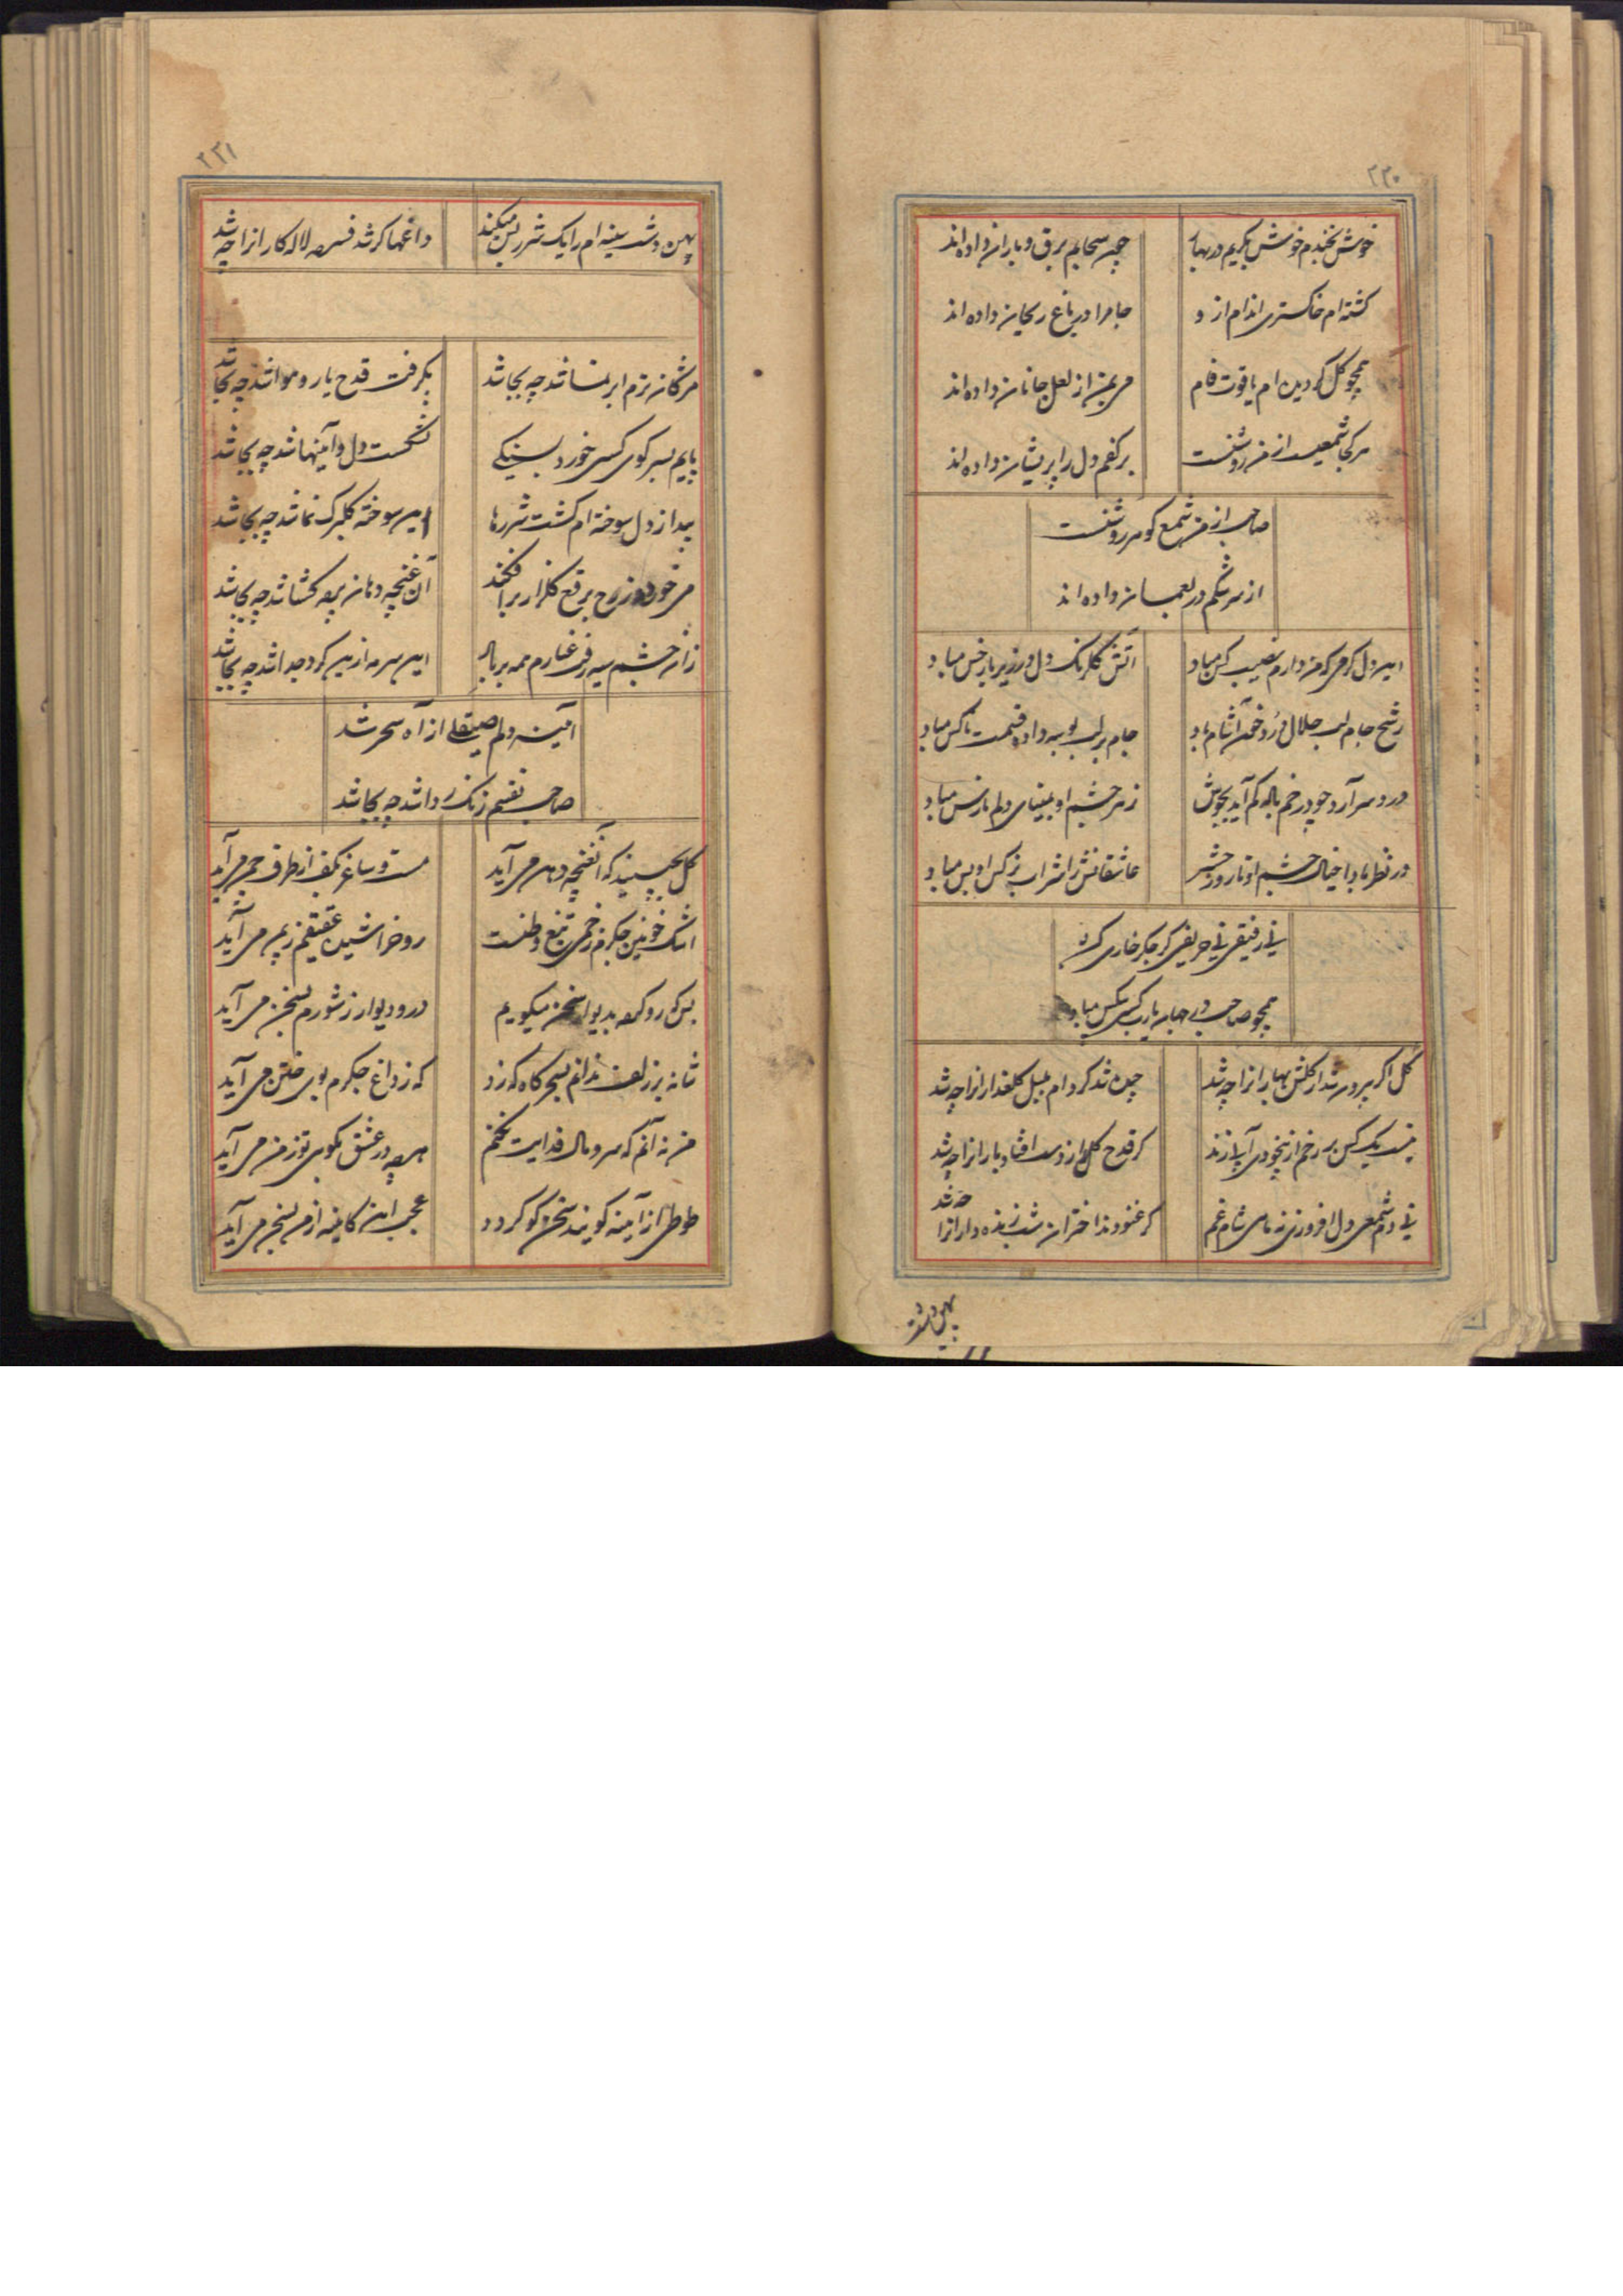 ۲۳۰
خوش بخندم خوش بگریم در بهار
چون سحابم برق و باران داده‌اند
گشته‌ام خاکستری اندام از و
جا مرا در باغ ریحان داده‌اند
همچو گل گردیده‌ام یاقوت فام
می بمن از لعل جانان داده‌اند
هر کجا شمعیست از من روشنست
بر کفم دل را پریشان داده‌اند
صاحب از من شمع گوهر روشنست
از سرشکم در بعمان داده‌اند
این دل گرمی که من دارم نصیب کس مباد
آتش گلرنگ دل در زیر بار خس مباد
رشح جام لب حلال درد خون آشام باد
جام بر لب بوسه داد و قسمت ناکس مباد
درد سر آرد چو در خم باده کم آید بجوش
زهر چشم او بمینای دلم نارس مباد
در نظر بادا خیال چشم او تا روز حشر
عاشقانش را شراب نرگس او بس مباد
نی رفیقی نی حریفی گر جگر خاری کند
همچو صاحب در جهان یارب کسی بیکس مباد
گل اگر بیرون شد از گلشن بهاران را چه شد
چون شد گر دام بلبل گلعذاران را چه شد
نیست یک کس بر رخم از بیخودی آبی زند
گر قدح گل از دست افتاد یاران را چه شد
نی دم شمعی دل افروزی نه مای شام غم
گر غنودند اختران شب زنده‌داران را چه شد
پهن دشت
۲۳۱
پهن دشت سینه‌ام را یک شرر بس میکند
داغها گر شد فسرده لاله‌کاران را چه شد
مژگان ترم ابر نما شد چه بجا شد
بگرفت قدح یار و هوا شد چه بجا شد
پایم بسر کوی کسی خورد بسنگی
بشکست دل و آینها شد چه بجا شد
پیدا ز دل سوخته‌ام گشت شررها
این سوخته گلبرگ نما شد چه بجا شد
می خورد و ز رخ برقع گلزار برافکند
آن غنچه دهان پرده گشا شد چه بجا شد
زان چشم سیه رفت غبارم همه بر باد
این سرمه ازین گرد جدا شد چه بجا شد
آئینه دلم صیقلی از آه سحر شد
صاحب نفسم زنگ زدا شد چه بجا شد
گل بچینید که آن غنچه دهن می‌آید
مست و ساغر بکف از طرف چمن می‌آید
اشک خونین جگرم زخمی تیغ وطنست
رو خراشیده عقیقم ز یمن می‌آید
بس که رو کرده بدیوار سخن میگویم
در و دیوار ز شورم بسخن می‌آید
شانه بر زلف ندانم بسحرگاه که زد
که ز داغ جگرم بوی ختن می‌آید
من نه آنم که سر و مال فدایت نکنم
هر چه در عشق بگوی تو ز من می‌آید
طوطی از آینه گویند سخن گو گردد
عجب این کاینه از من بسخن می‌آید